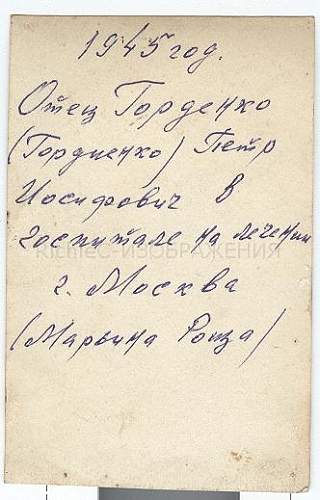 1945 год.
Отец Горденко
(Гордиенко) Петр
Иосифович в
госпитале на лечении
г. Москва
(Марьина Роща)